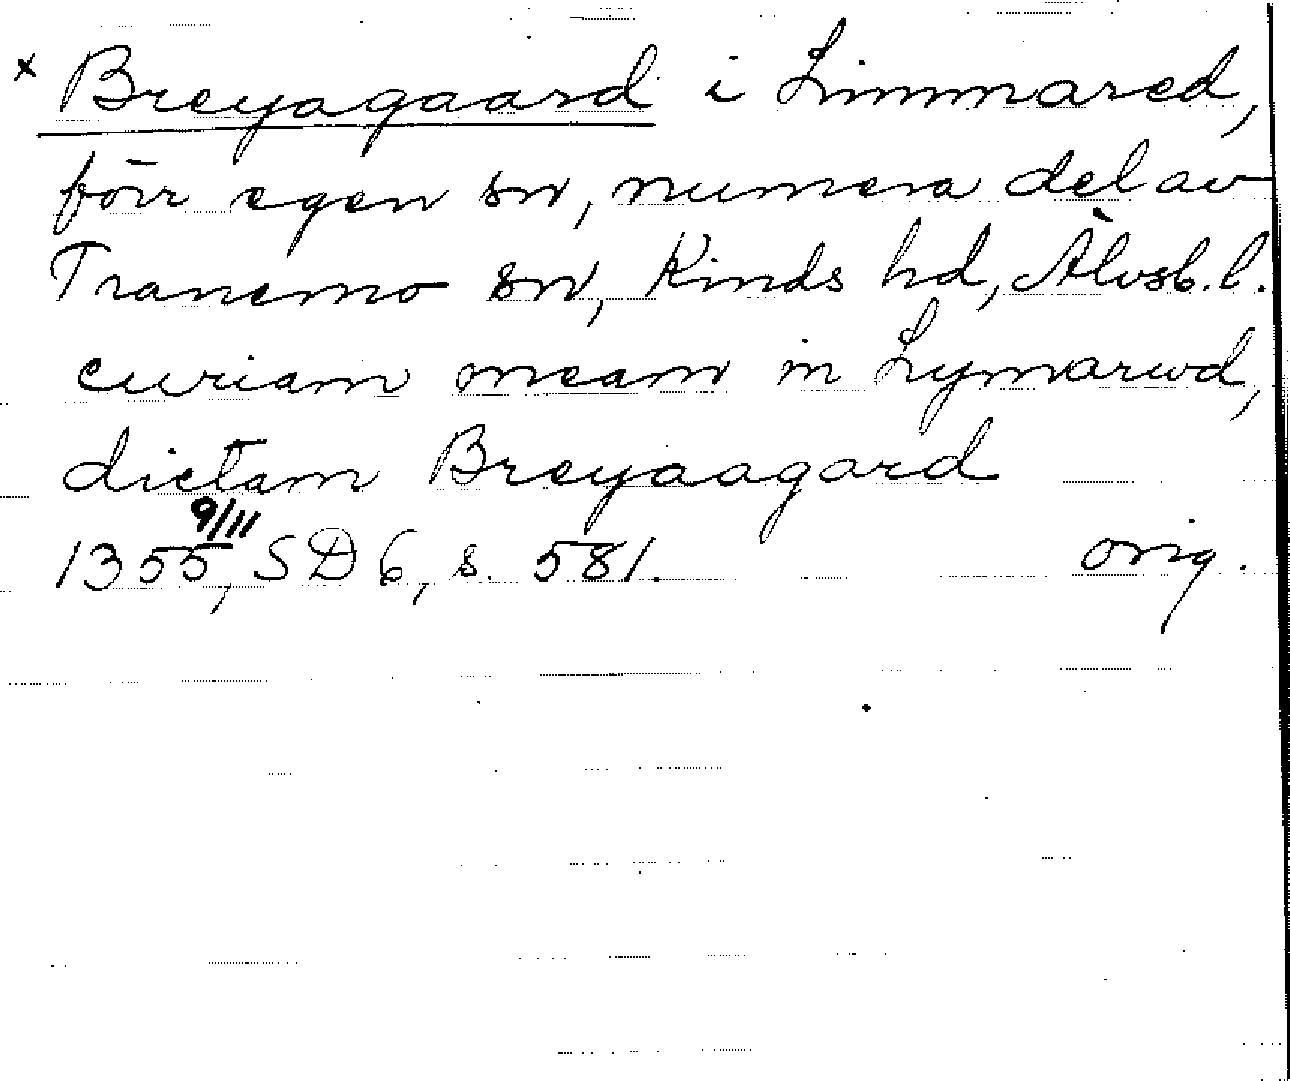 x Breyagaard i Limmared,
förr egen sn, numera del av
Tranemo sn, Kinds hd, Älvsb. l.
curiam meam in Lymarwd,
dictam Breyaagard
9/11
1355, SD 6, s. 581. orig.